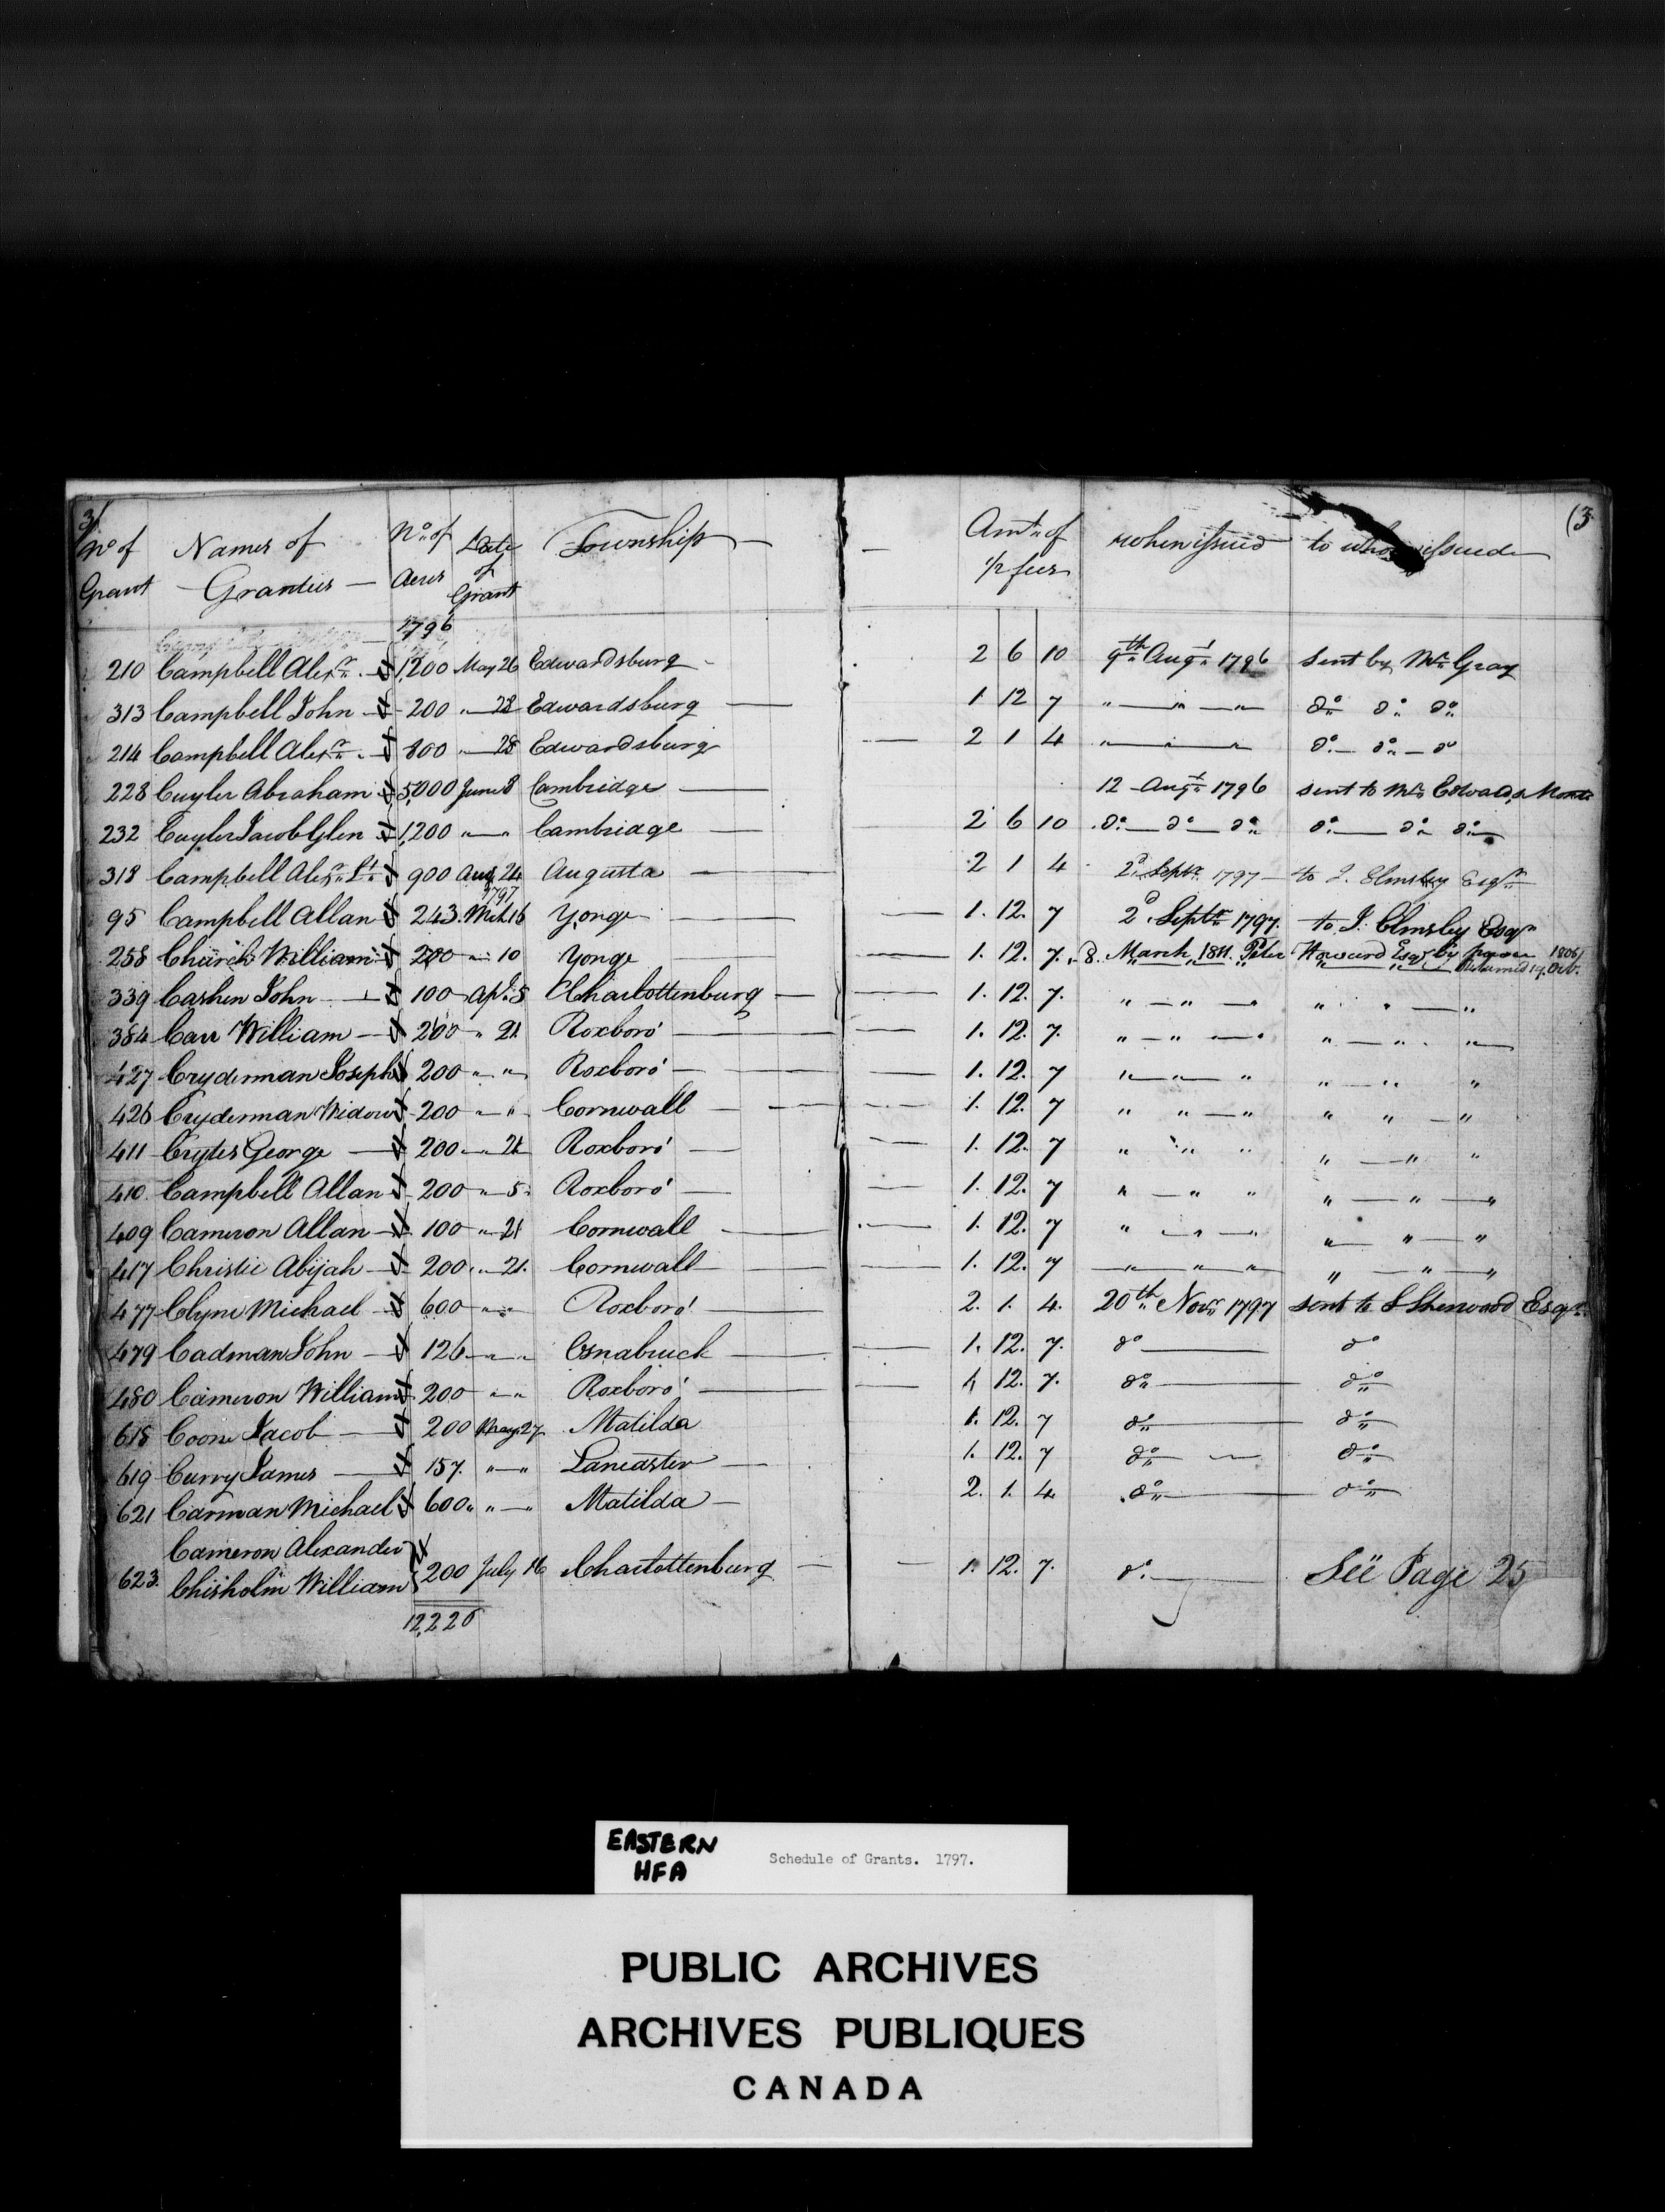 3 (3
No. of Grant Names of Grantees No. of Acres Date of Grant Township Amt. of 1/2 fees when issued to whom issued
1796
210 Campbell Alexr. 1,200 May 26 Edwardsburg 2 6 10 9th Augt. 1796 Sent by Mr. Gray
313 Campbell John 200 " 28 Edwardsburg 1 12 7 " " " do do do
214 Campbell Alexr. 800 " 28 Edwardsburg 2 1 4 " " " do do do
228 Cuyler Abraham 5,000 June 8 Cambridge 12 Augt. 1796 sent to Mr. Edwards
232 Cuyler Jacob Glen 1,200 " " Cambridge 2 6 10 do do do do do do
318 Campbell Alexr. Lt. 900 Aug 24 Augusta 2 1 4 2d Septr. 1797 to J. Elmsley Esqr.
1797
95 Campbell Allan 243 Mch 16 Yonge 1. 12. 7 2d Septr. 1797. to J. Elmsley Esqr.
258 Church William 200 " 10 Yonge 1. 12. 7. 8. March, 1811. Peter Howard Esqr. by power 1806
Returned 19, Octr.
339 Cashen John 100 Apl. 5 Charlottenburg 1. 12. 7. " " " " "
384 Carr William 200 " 21 Roxboro' 1. 12. 7. " " " " "
427 Cryderman Joseph 200 " " Roxboro' 1. 12. 7 " " " " " "
426 Cryderman Widow 200 " " Cornwall 1. 12. 7 " " " " " "
411 Cryter George 200 " 21 Roxboro' 1. 12. 7 " " " " " "
410 Campbell Allan 200 " 5 Roxboro' 1. 12. 7 " " " " " "
409 Cameron Allan 100 " 21 Cornwall 1. 12. 7 " " " " " "
417 Christie Abijah 200 " 21. Cornwall 1. 12. 7 " " " " " "
477 Clyne Michael 600 " " Roxboro' 2. 1. 4. 20th Novr. 1797 sent to S Sherwood Esqr.
479 Cadman John 126 " " Osnabruck 1. 12. 7. do do
480 Cameron William 200 " " Roxboro' 1 12. 7. do do
618 Coone Jacob 200 May 27 Matilda 1. 12. 7 do do
619 Curry James 157. " " Lancaster 1. 12. 7 do do
621 Carman Michael 600 " " Matilda 2. 1. 4 do do
Cameron Alexander
623. Chisholm William 200 July 16 Charlottenburg 1. 12. 7. do See Page 25
12,226
EASTERN
HFA
Schedule of Grants. 1797.
PUBLIC ARCHIVES
ARCHIVES PUBLIQUES
CANADA